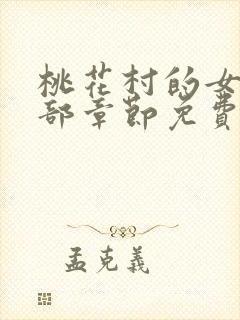 桃花村的女
部章節免費
孟克義